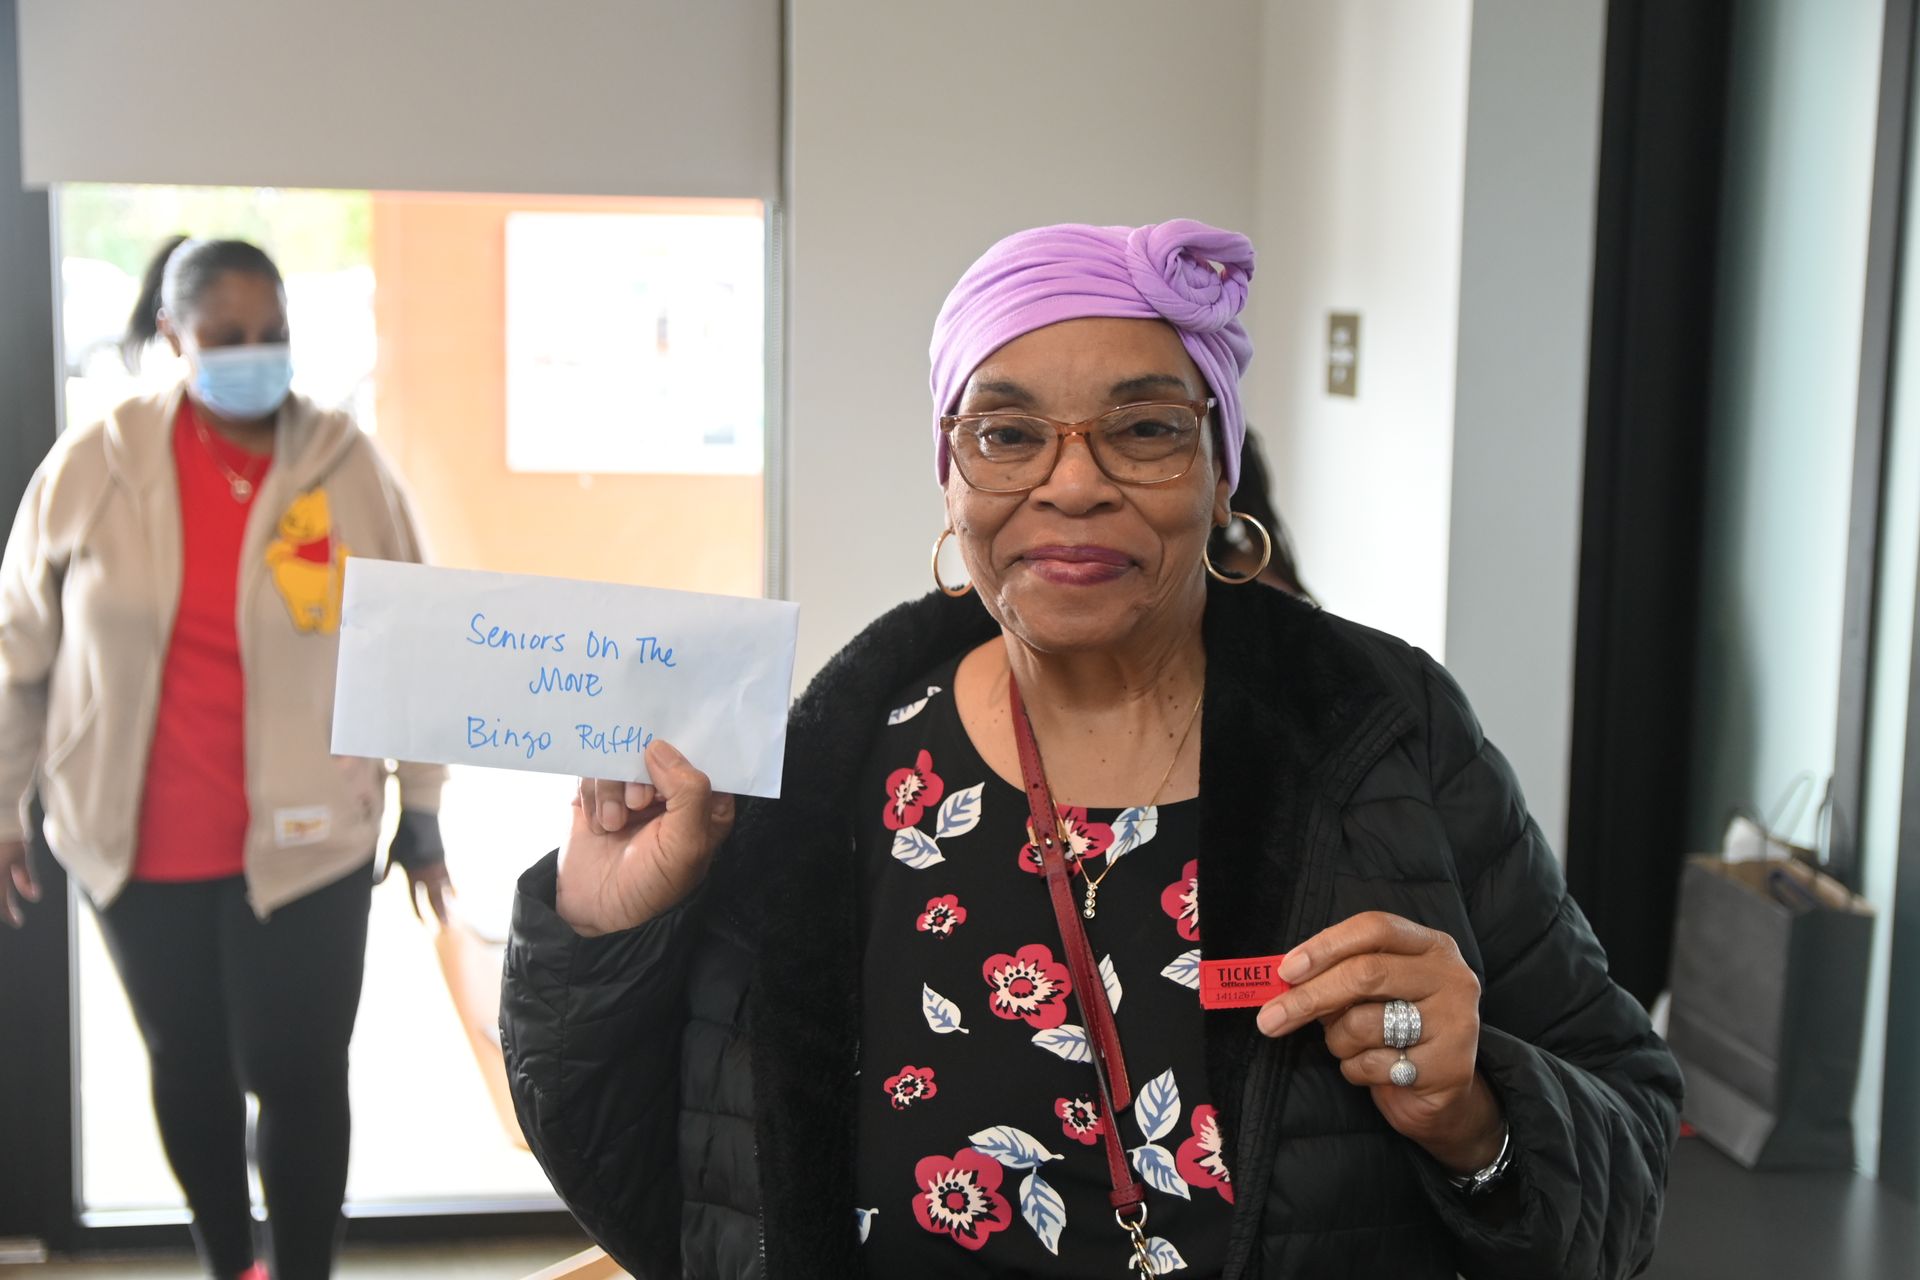 Seniors On The
Move
Bingo Raffle
TICKET
Office DEPOT
1411267